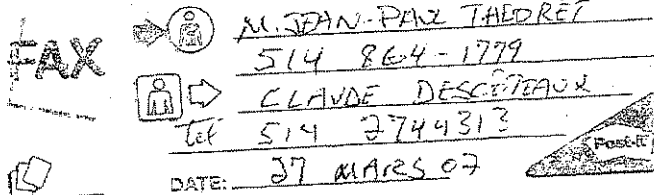 FAX
M. JEAN-PAUL THÉORET
514 864-1779
CLAUDE DESCÔTEAUX
Tel 514 2744313
Post-it
DATE: 27 MARS 07